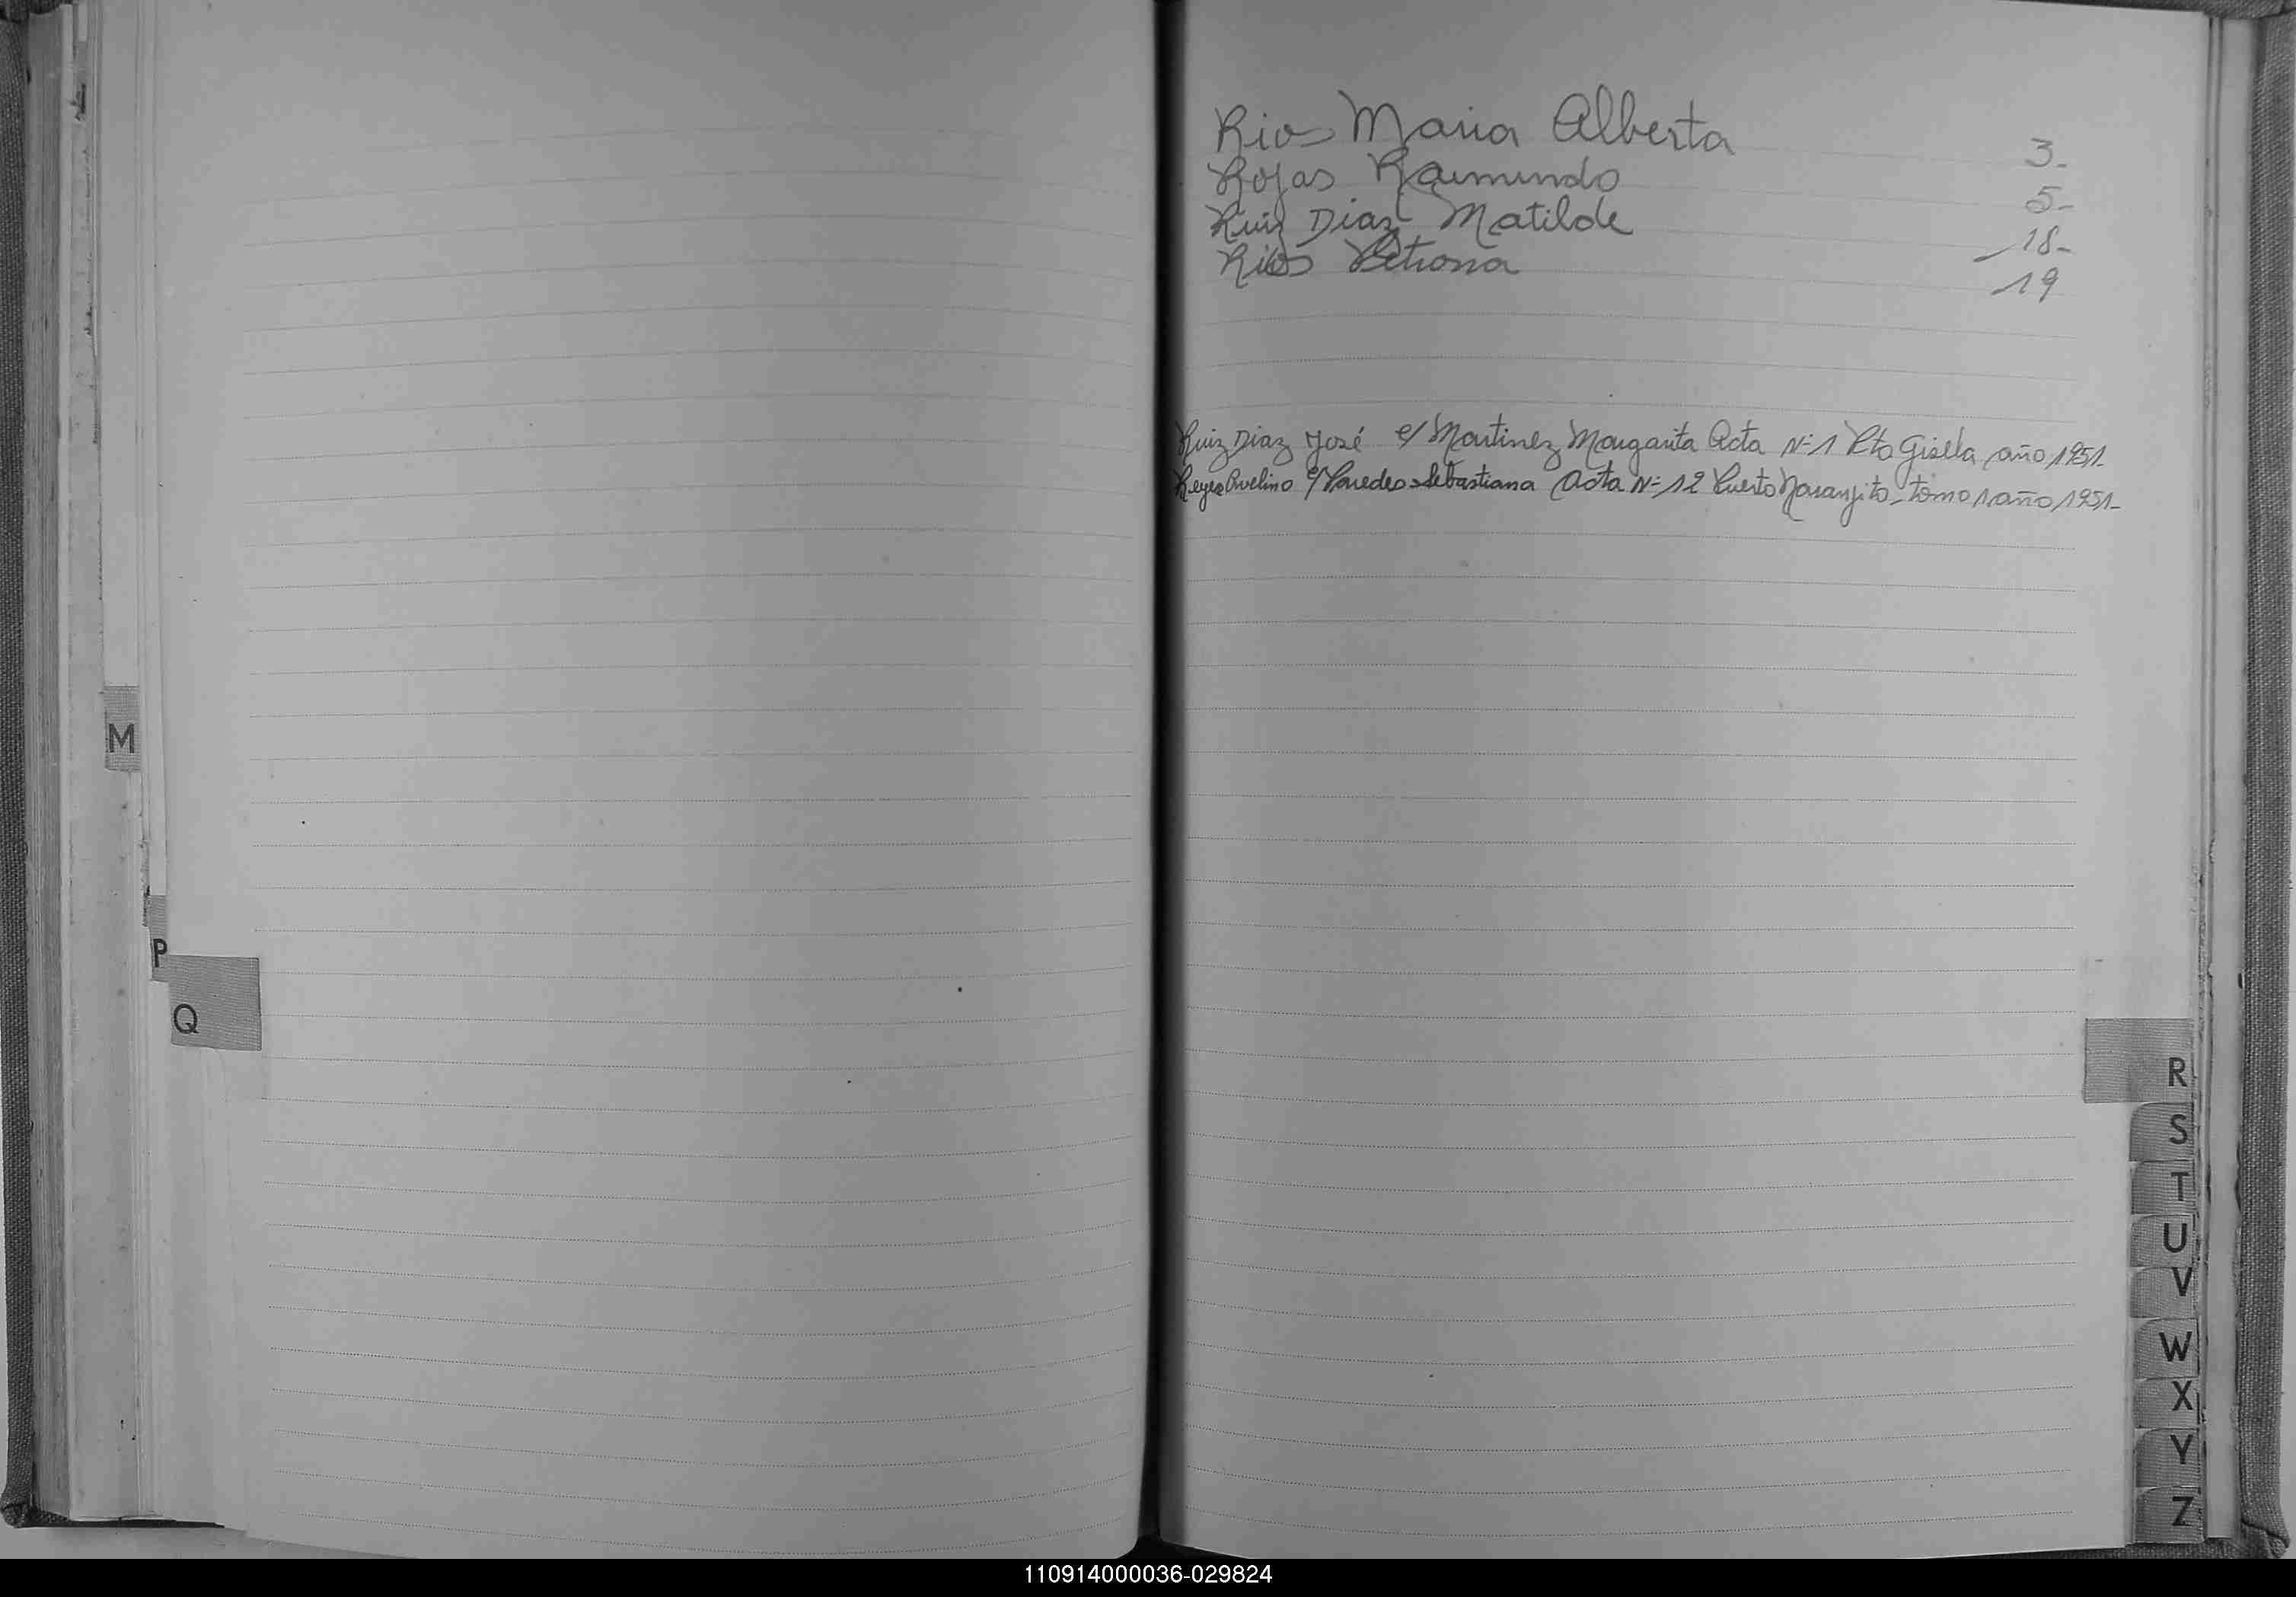 Rios Maria Alberta 3-
Rojas Raimundo 5-
Ruiz Diaz Matilde 18-
Rios Petrona 19
Ruiz Diaz José c/ Martinez Margarita Acta Nº 1 Pto Gisella año 1951-
Reyes Avelino c/ Paredes Sebastiana Acta Nº 12 Puerto Naranjito - tomo 1 año 1951-
M
P
Q
R
S
T
U
V
W
X
Y
Z
110914000036-029824